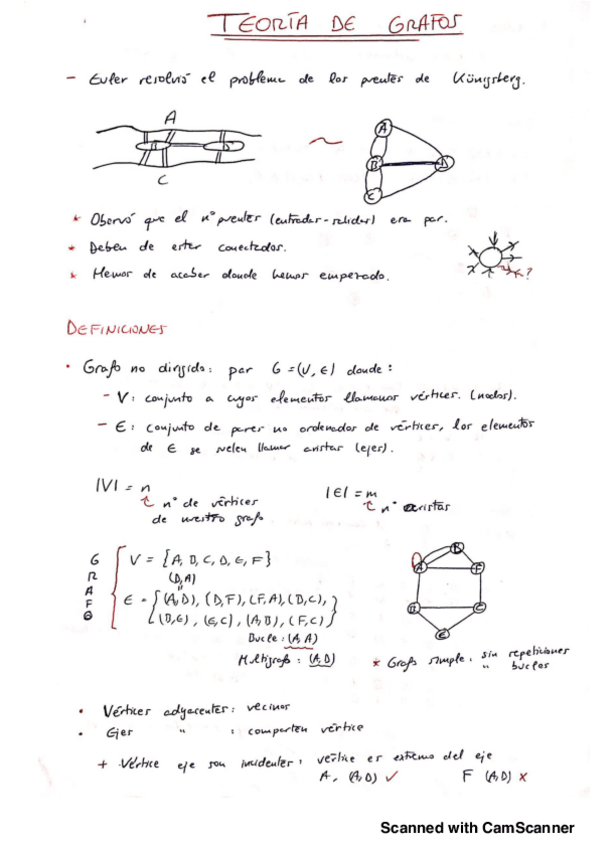 TEORÍA DE GRAFOS
- Euler resolvió el problema de los puentes de Künigsberg.
A
B D
C
A
B D
C
* Observó que el nº puentes (entradas-salidas) era par.
* Deben de estar conectados.
* Hemos de acabar donde hemos empezado.
?
DEFINICIONES
• Grafo no dirigido: par G = (V, E) donde:
- V: conjunto a cuyos elementos llamamos vértices. (nodos).
- E: conjunto de pares no ordenados de vértices, los elementos
de E se suelen llamar aristas (ejes).
|V| = n
nº de vértices
de nuestro grafo
|E| = m
nº aristas
GRAFO
V = {A, B, C, D, E, F}
(B,A)
E = {(A,B), (B,F), (F,A), (D,C),
(D,E), (E,C), (A,D), (F,C)}
Bucle: (A,A)
Multigrafo: (A,B)
B
A F
D C
E
* Grafo simple: sin repeticiones
" bucles
• Vértices adyacentes: vecinos
• Ejes " : comparten vértice
+ Vértice eje son incidentes: vértice es extremo del eje
A, (A,D) ✓ F (A,D) x
Scanned with CamScanner